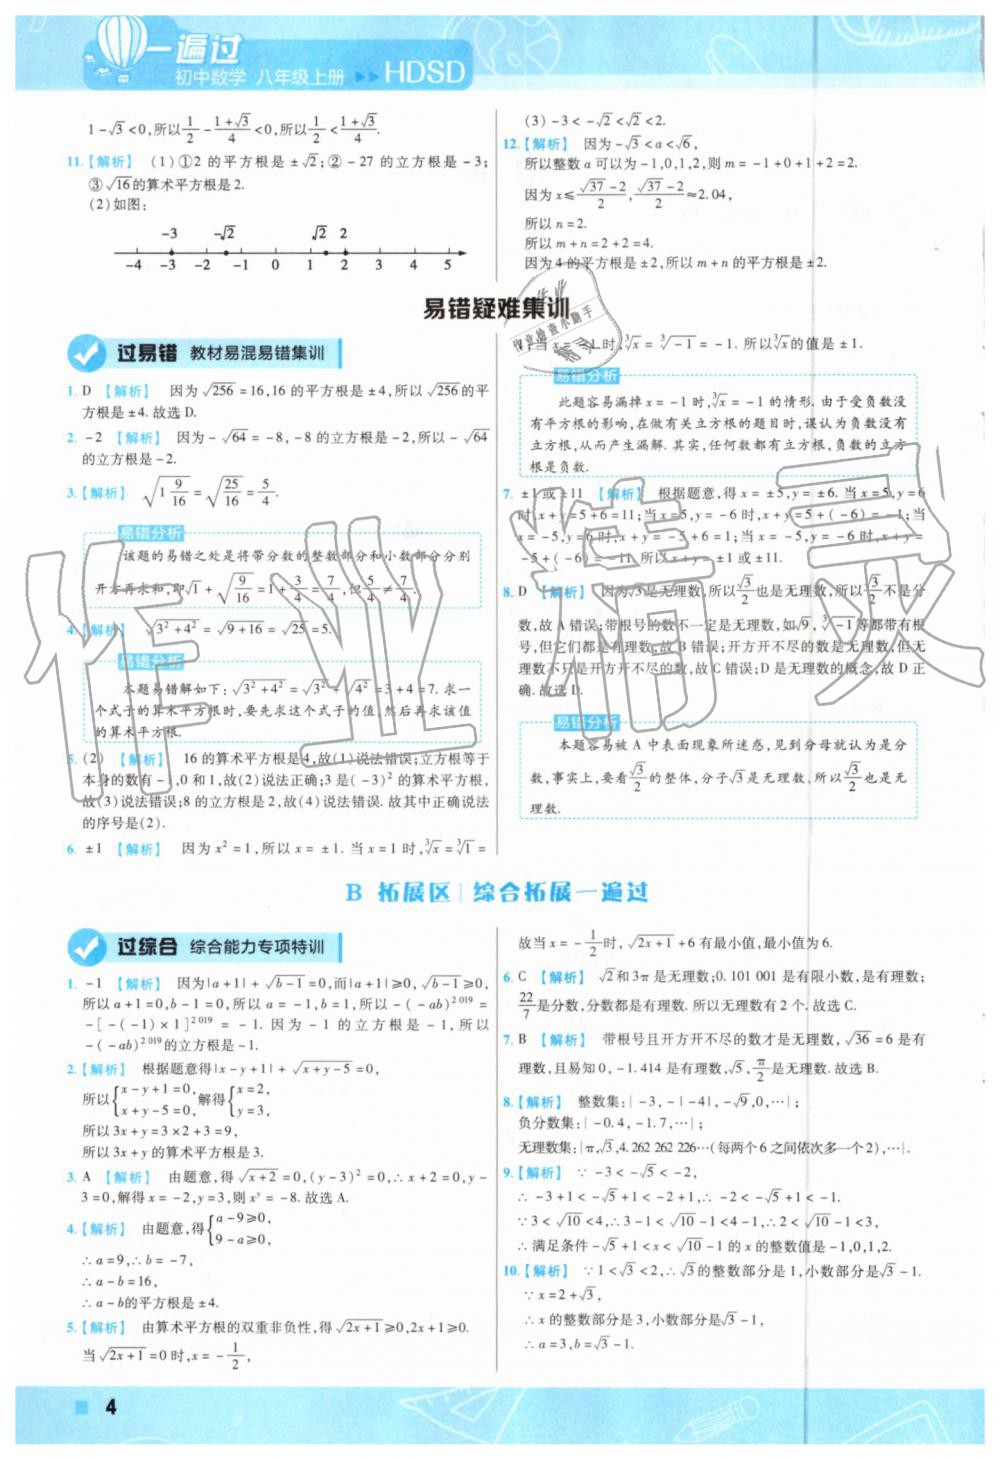 一遍过
初中数学 八年级上册 ▶▶ HDSD
1-√3<0,所以1/2-(1+√3)/4<0,所以1/2<(1+√3)/4.
11.【解析】 (1)①2 的平方根是 ±√2;②-27 的立方根是 -3;
③√16的算术平方根是2.
(2)如图:
-3 -√2 √2 2
-4 -3 -2 -1 0 1 2 3 4 5
(3)-3<-√2<√2<2.
12.【解析】 因为-√3<a<√6,
所以整数 a 可以为 -1,0,1,2,则 m=-1+0+1+2=2.
因为 x≤(√37-2)/2,(√37-2)/2≈2.04,
所以 n=2.
所以 m+n=2+2=4.
因为4的平方根是±2,所以 m+n 的平方根是±2.
易错疑难集训
过易错 教材易混易错集训
1. D 【解析】 因为√256=16,16 的平方根是±4,所以√256的平
方根是±4.故选 D.
2. -2 【解析】 因为-√64=-8,-8 的立方根是-2,所以-√64
的立方根是-2.
3.【解析】 √(1 9/16)=√(25/16)=5/4.
易错分析
该题的易错之处是将带分数的整数部分和小数部分分别
开方再求和,即√1+√(9/16)=1+3/4=7/4,但5/4≠7/4.
4.【解析】 √(3²+4²)=√(9+16)=√25=5.
易错分析
本题易错解如下:√(3²+4²)=√3²+√4²=3+4=7. 求一
个式子的算术平方根时,要先求这个式子的值,然后再求该值
的算术平方根.
5. (2) 【解析】 16 的算术平方根是4,故(1)说法错误;立方根等于
本身的数有-1,0和1,故(2)说法正确;3是(-3)²的算术平方根,
故(3)说法错误;8的立方根是2,故(4)说法错误. 故其中正确说法
的序号是(2).
6. ±1 【解析】 因为x²=1,所以x=±1.当x=1时,³√x=³√1=
1;当x=-1时,³√x=³√-1=-1.所以³√x的值是±1.
易错分析
此题容易漏掉 x=-1 时,³√x=-1 的情形. 由于受负数没
有平方根的影响,在做有关立方根的题目时,误认为负数没有
立方根,从而产生漏解. 其实,任何数都有立方根,负数的立方
根是负数.
7. ±1或±11 【解析】 根据题意,得x=±5,y=±6.当x=5,y=6
时,x+y=5+6=11;当x=5,y=-6时,x+y=5+(-6)=-1;当
x=-5,y=6时,x+y=-5+6=1;当x=-5,y=-6时,x+y=
-5+(-6)=-11.所以x+y=±1或±11.
8. D 【解析】 因为√3是无理数,所以√3/2也是无理数,所以√3/2不是分
数,故A错误;带根号的数不一定是无理数,如√9,³√-1等都带有根
号,但它们都是有理数,故B错误;开方开不尽的数是无理数,但无
理数不只是开方开不尽的数,故C错误;D是无理数的概念,故D正
确.故选D.
易错分析
本题容易被 A 中表面现象所迷惑,见到分母就认为是分
数,事实上,要看√3/2的整体,分子√3是无理数,所以√3/2也是无
理数.
B 拓展区 | 综合拓展一遍过
过综合 综合能力专项特训
1. -1 【解析】 因为|a+1|+√(b-1)=0,而|a+1|≥0,√(b-1)≥0,
所以a+1=0,b-1=0,所以a=-1,b=1,所以-(-ab)²⁰¹⁹=
-[-(-1)×1]²⁰¹⁹=-1. 因为-1的立方根是-1,所以
-(-ab)²⁰¹⁹的立方根是-1.
2.【解析】 根据题意得|x-y+1|+√(x+y-5)=0,
所以{x-y+1=0, x+y-5=0, 解得{x=2, y=3,
所以3x+y=3×2+3=9,
所以3x+y的算术平方根是3.
3. A 【解析】 由题意,得√(x+2)=0,(y-3)²=0,∴x+2=0,y-
3=0,解得x=-2,y=3,则xʸ=-8.故选A.
4.【解析】 由题意,得{a-9≥0, 9-a≥0,
∴a=9,∴b=-7,
∴a-b=16,
∴a-b的平方根是±4.
5.【解析】 由算术平方根的双重非负性,得√(2x+1)≥0,2x+1≥0.
当√(2x+1)=0时,x=-1/2,
故当x=-1/2时,√(2x+1)+6有最小值,最小值为6.
6. C 【解析】 √2和3π是无理数;0.101 001是有限小数,是有理数;
22/7是分数,分数都是有理数. 所以无理数有2个. 故选C.
7. B 【解析】 带根号且开方开不尽的数才是无理数,√36=6是有
理数,且易知0,-1.414是有理数,√5,π/2是无理数.故选B.
8.【解析】 整数集:{-3,-|-4|,-√9,0,…};
负分数集:{-0.4,-1.7,…};
无理数集:{π,√3,4.262 262 226…(每两个6之间依次多一个2),…}.
9.【解析】 ∵-3<-√5<-2,
∴-3+1<-√5+1<-2+1,∴-2<-√5+1<-1.
∵3<√10<4,∴3-1<√10-1<4-1,∴2<√10-1<3,
∴满足条件-√5+1<x<√10-1的x的整数值是-1,0,1,2.
10.【解析】 ∵1<√3<2,∴√3的整数部分是1,小数部分是√3-1.
∵x=2+√3,
∴x的整数部分是3,小数部分是√3-1,
∴a=3,b=√3-1.
4
作业精灵
作业检查小助手